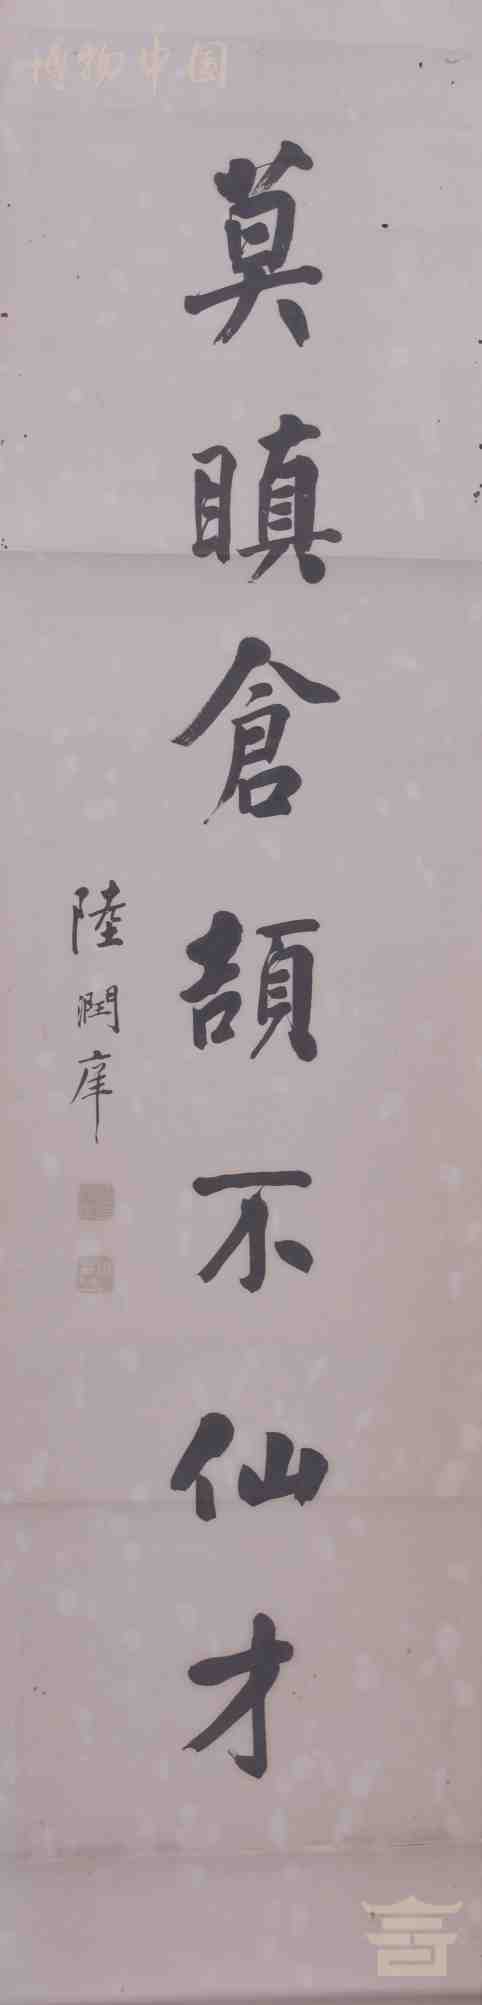 博物中国
莫瞋倉頡不仙才
陸潤庠